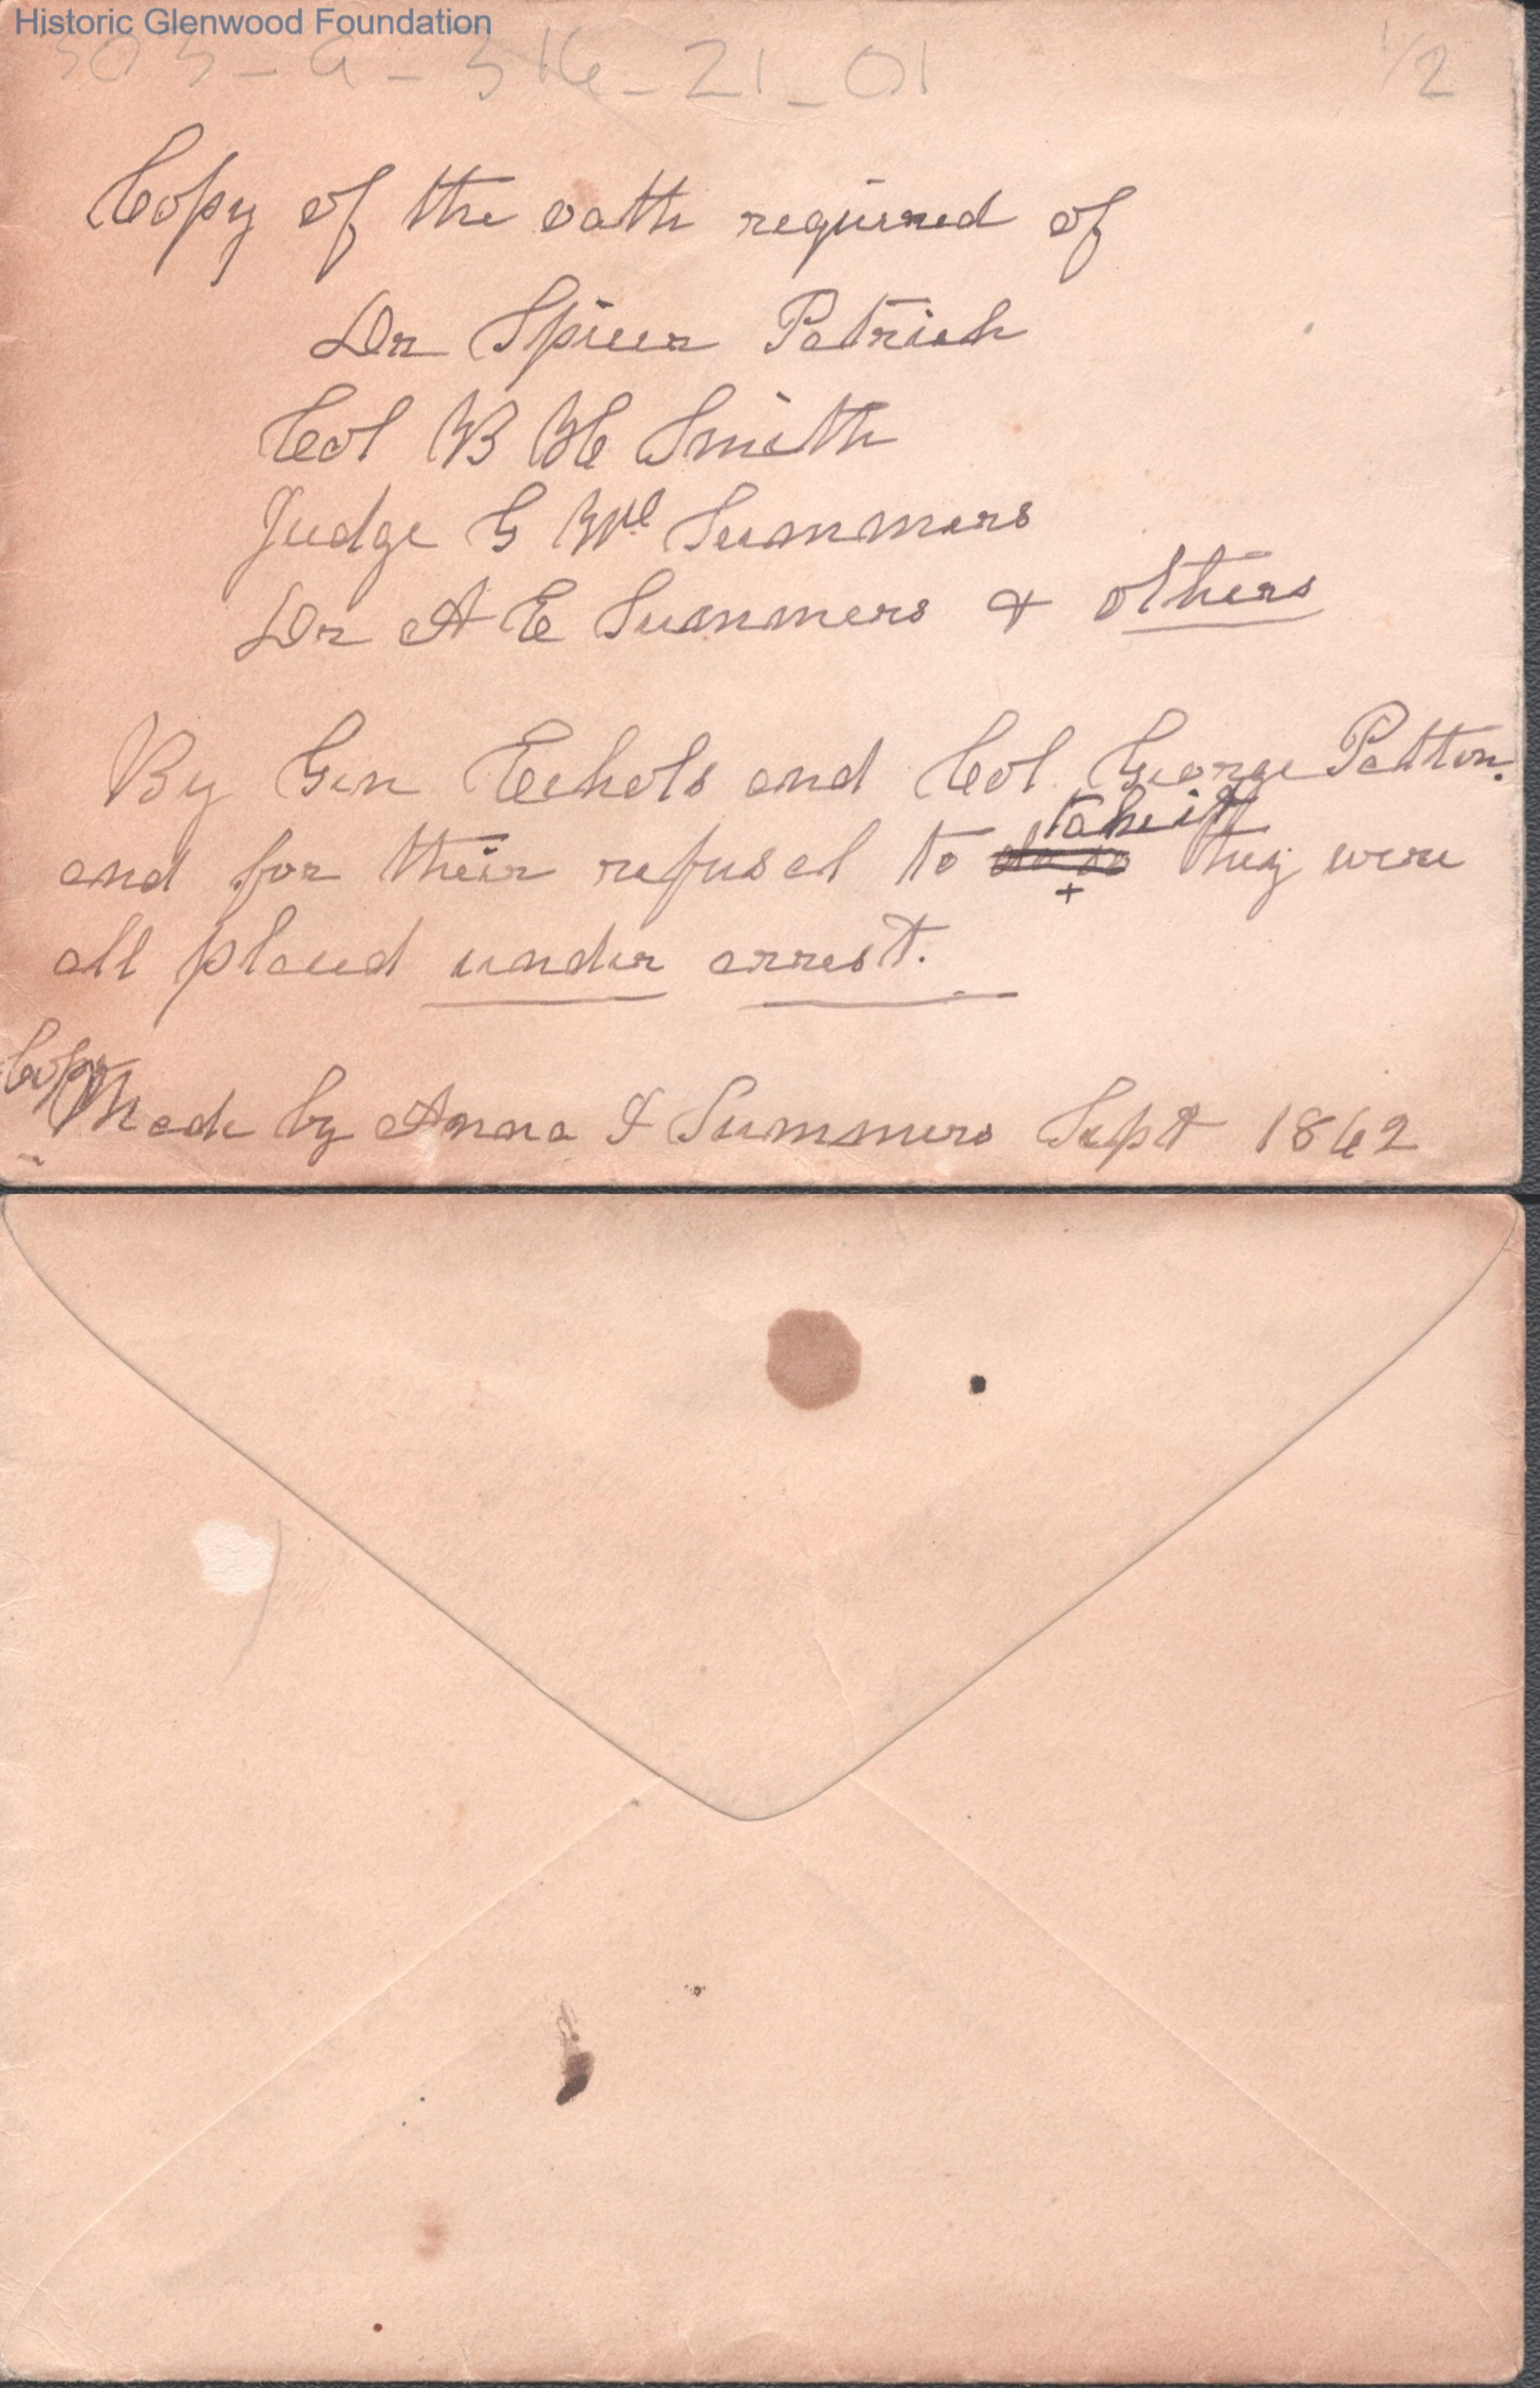 Historic Glenwood Foundation
303-a-316-21-01 1/2
Copy of the oath required of
Dr Spicer Patrick
Col B H Smith
Judge G W Summers
Dr A E Summers & others
By Gen Echols and Col George Patton.
take it
and for their refusal to do so they were
+
all placed under arrest.
Copy
Made by Anna I Summers Sept 1862